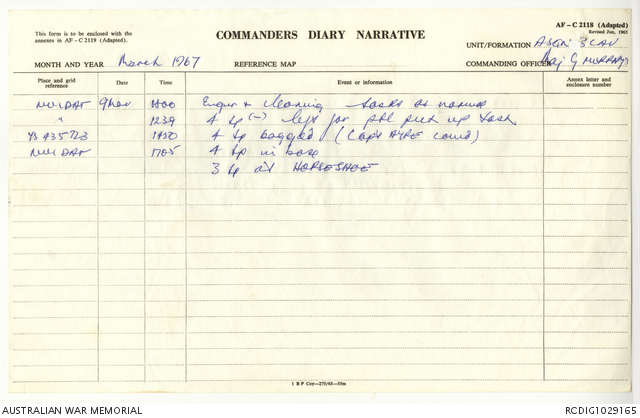 AF - C 2118 (Adapted)
Revised Jun, 1965
This form is to be enclosed with the
annexes in AF - C 2119 (Adapted).
COMMANDERS DIARY NARRATIVE
UNIT/FORMATION A Sqn 3 CAV
MONTH AND YEAR March 1967
REFERENCE MAP
COMMANDING OFFICER Maj G MURRAY
Place and grid reference
Date
Time
Event or information
Annex letter and enclosure number
NUI DAT 9 Mar 1100 & Cleaning tasks as normal
" 1239 4 tp (-) left for ptl pick up task.
YS 435723 1450 4 tp bogged (Capt comd)
NUI DAT 1705 4 tp in base
3 tp at HORSESHOE
1 B P Coy—275/65—50m
AUSTRALIAN WAR MEMORIAL
RCDIG1029165